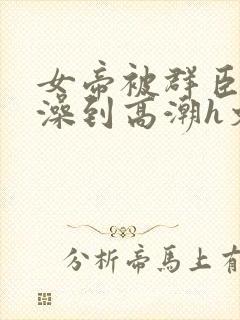 女帝被群臣
澡到高潮h
分析帝馬上有